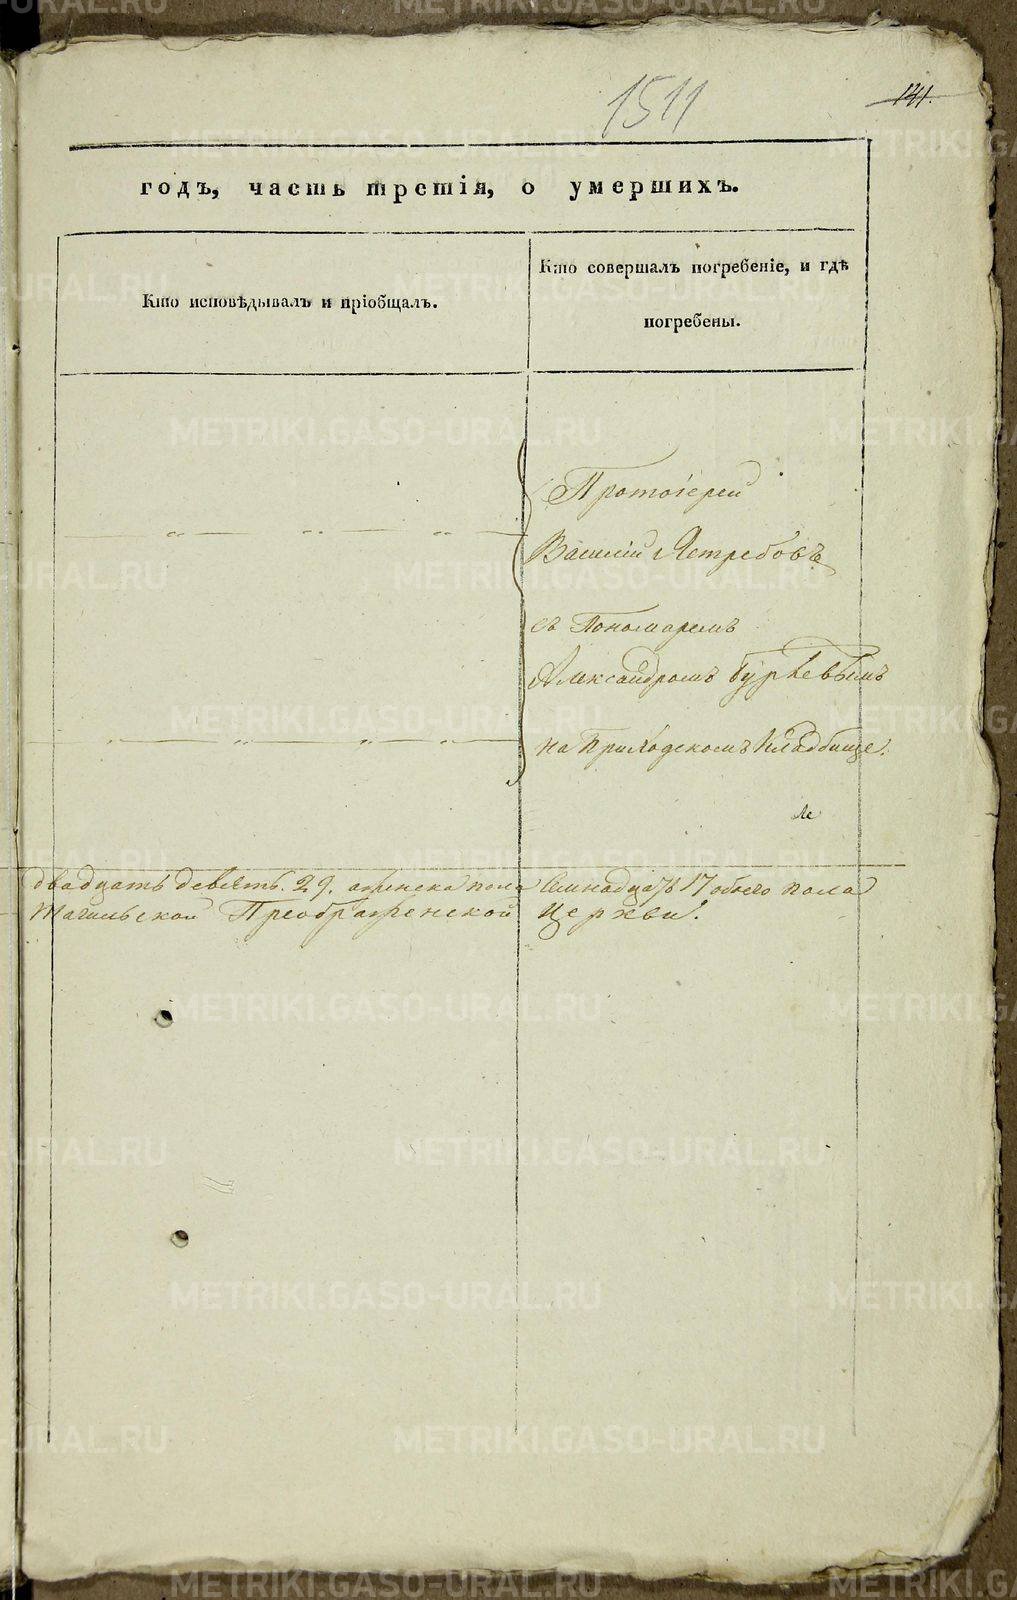 1511
141.
годъ, часть третія, о умершихъ.
Кто исповѣдывалъ и пріобщалъ.
Кто совершалъ погребеніе, и гдѣ
погребены.
Протоіерей
Василій Ястребовъ
съ Пономаремъ
Александромъ Гурьевымъ
на Приходскомъ Кладбище.
двадцать девять. 29. женска пола
обоего пола
Тагильской Преображенской Церкви.
METRIKI.GASO-URAL.RU